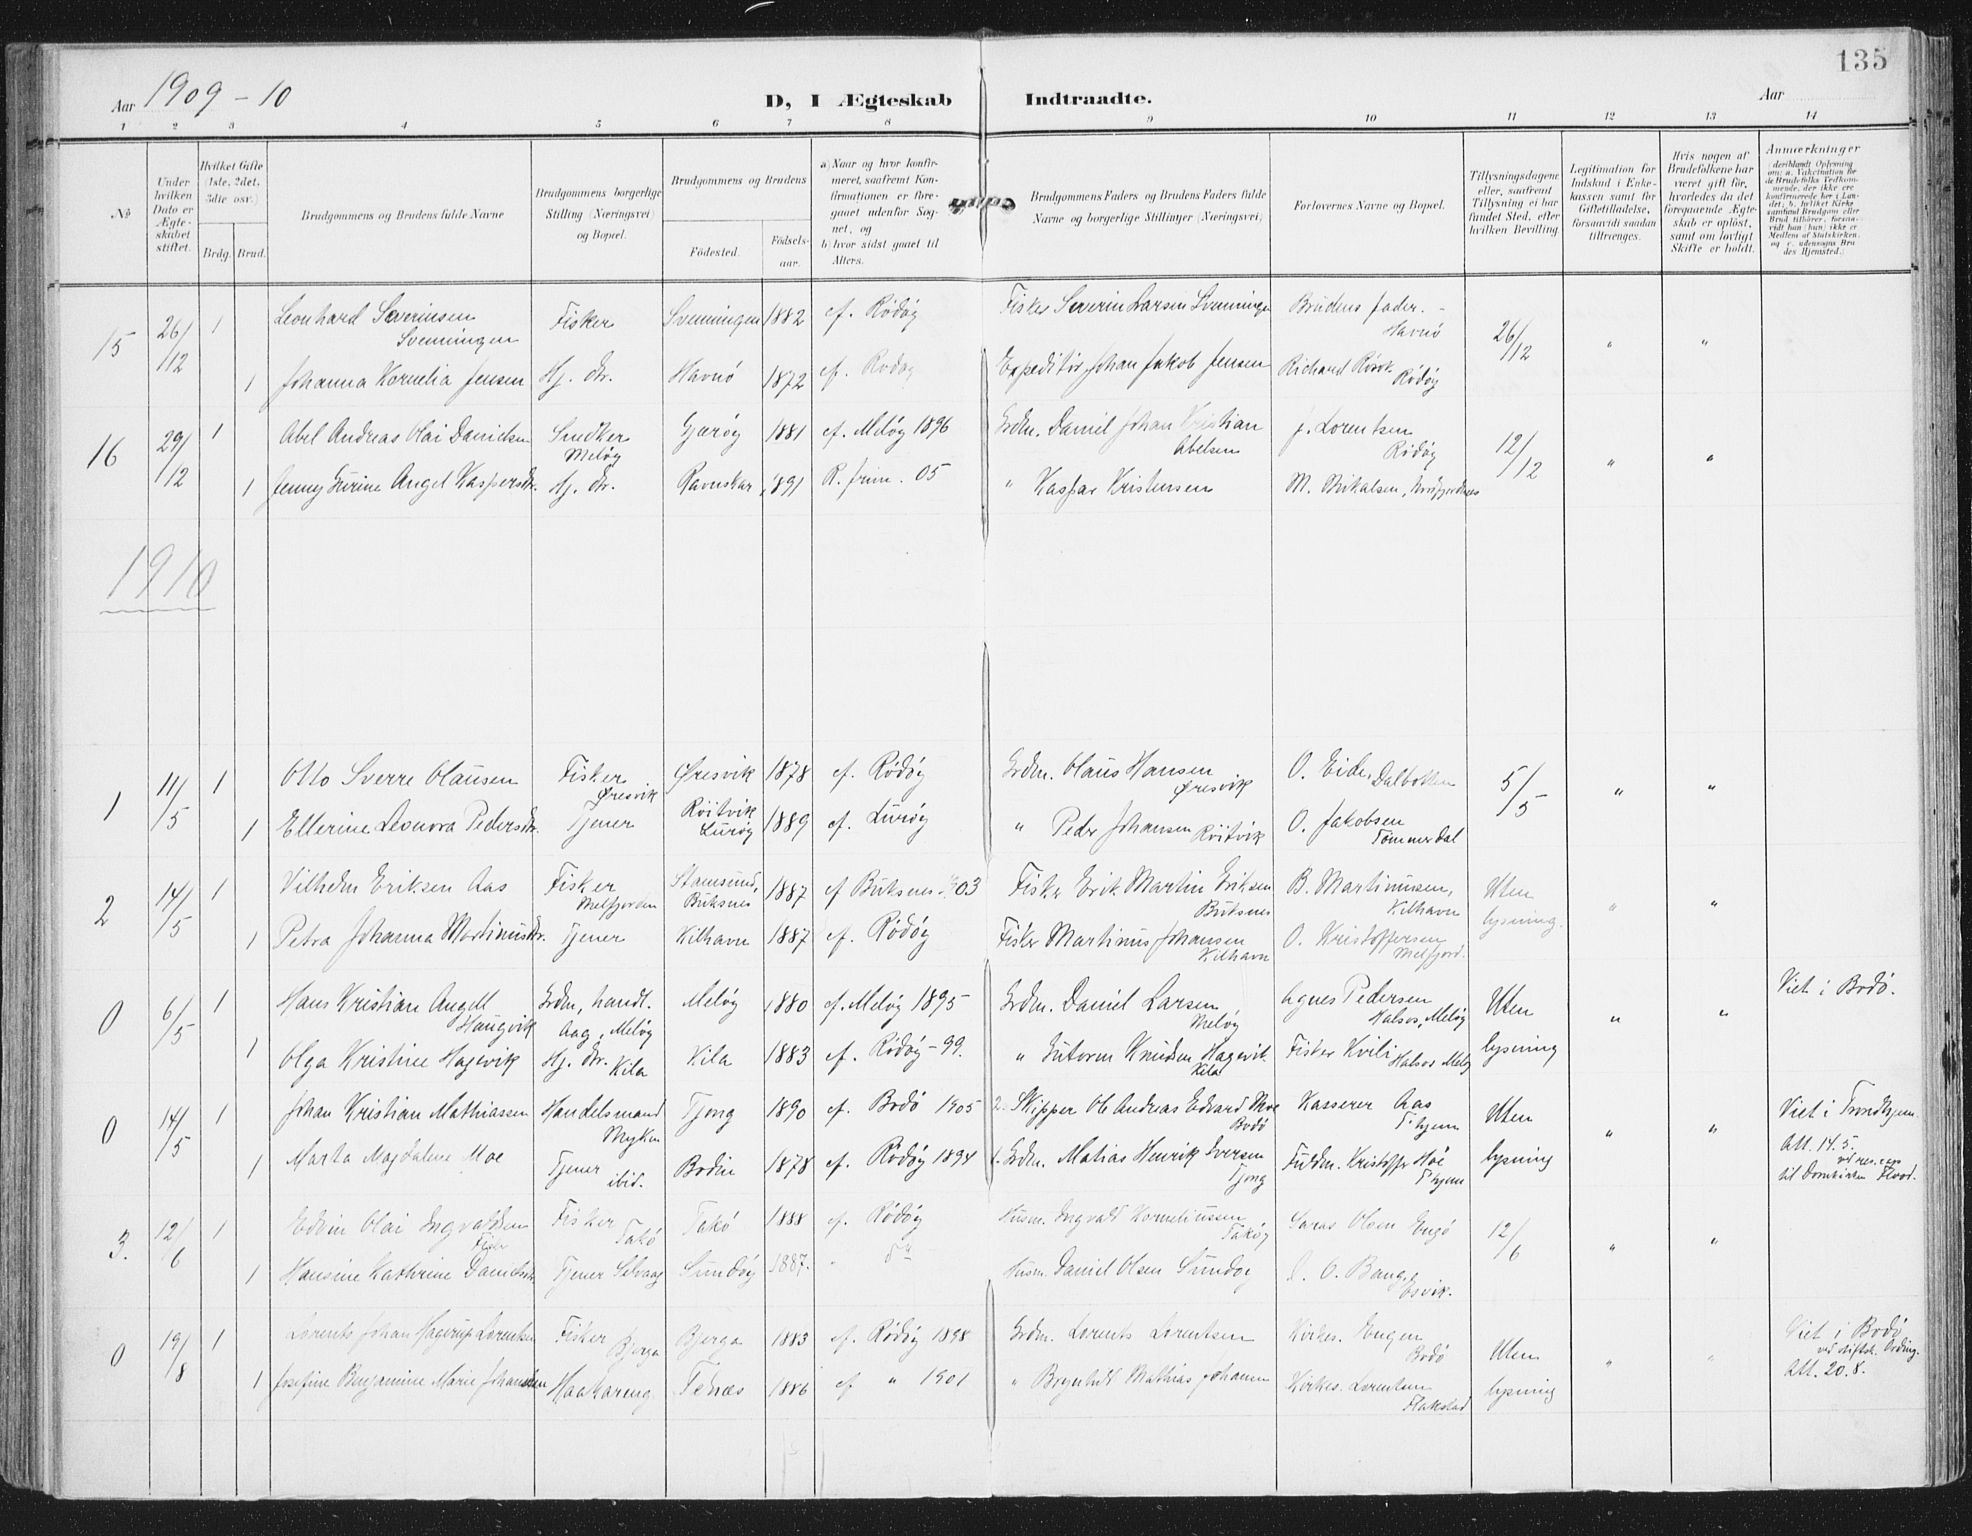 135
Aar 1909-10
D, I Ægteskab Indtraadte.
Aar
1 2 3 4 5 6 7 8 9 10 11 12 13 14
No
Under hvilken Dato er Ægteskabet stiftet.
Hvilket Gifte (1ste, 2det, 3die osv.)
Brdg. Brud.
Brudgommens og Brudens fulde Navne
Brudgommens borgerlige Stilling (Næringsvei) og Bopæl.
Brudgommens og Brudens
Fødested.
Fødselsaar.
a) Naar og hvor konfirmeret, saafremt Konfirmationen er foregaaet udenfor Sognet, og
b) hvor sidst gaaet til Alters.
Brudgommens Faders og Brudens Faders fulde Navne og borgerlige Stillinger (Næringsvei)
Forlovernes Navne og Bopæl.
Tillysningsdagene eller, saafremt Tillysning ei har fundet Sted, efter hvilken Bevilling.
Legitimation for Indskud i Enkekassen samt for Giftetilladelse, forsaavidt saadan tiltrænges.
Hvis nogen af Brudefolkene har været gift før, hvorledes da det foregaaende Ægteskab er opløst, samt om lovligt Skifte er holdt.
Anmærkninger (deriblandt Oplysning om: a. Vakcination for de Brudefolks Vedkommende, der ikke ere konfirmerede her i Landet; b. hvilket Kirkesamfund Brudgom eller Brud tilhører, forsaavidt han (hun) ikke er Medlem af Statskirken, og c. udensogns Brudes Hjemsted.)
15 26/12 1 Leonhard Severinsen Svenningen Fisker Svenningen 1882 ef. Rødøy Fisker Severin Larsen Svenningen Brudens fader. - Havnø 26/12 " "
1 Johanna Kornelia Jensen Hj. dr. Havnø 1872 ef. Rødøy Expeditør Johan Jakob Jensen Richard Rørvk Rødøy
16 29/12 1 Abel Andreas Olai Danielsen Snedker Meløy Gjærøy 1881 ef. Meløy 1896 Grdm. Daniel Johan Kristian Abelsen J. Lorentsen Rødøy 12/12 " "
1 Jenny Gurine Angel Kaspersdr. Hj. dr. Ravnskar 1891 R. 05 " Kaspar Kristensen M. Mikalsen,
1910
1 11/5 1 Otto Sverre Olausen Fisker Øresvik Øresvik 1878 ef. Rødøy Grdm. Olaus Hansen Øresvik O. Eide, Dalbotten 5/5 " "
1 Ellerine Leonora Pedersdr. Tjener Røitvik Lurøy 1889 ef. Lurøy " Peder Johansen Røitvik O. Jakobsen Tømmerdal
2 14/5 1 Vilhelm Eriksen Aas Fisker Melfjorden Stamsund, Buksnes 1887 ef Buksnes 03 Fisker Erik Martin Eriksen Buksnes B. Martinussen, Kilhavn Uten lysning. " "
1 Petra Johanna Martinusdr. Tjener Kilhavn 1887 ef. Rødøy Fisker Martinus Johansen Kilhavn O. Kristoffersen Melfjord.
0 6/5 1 Hans Kristian Angell Haugvik Grdm, handl. Aag, Meløy Meløy 1880 ef. Meløy 1895 Grdm. Daniel Larsen Meløy Agnes Pedersen Halsos, Meløy Uten lysning " " Viet i Bodø.
1 Olga Kristine Hagevik Hj. dr. Kila Kila 1883 ef. Rødøy - 99. " Gutorm Knudsen Hagevik Kila Fisker Kvili Halsos Meløy
0 14/5 1 Johan Kristian Mathiassen Handelsmand Myken Tjong 1890 ef. Bodø 1905 2. Skipper Ole Andreas Edvard Moe Bodø Kasserer Aas T.hjem Uten lysning " " Viet i Trondhjem Att. 14.5. ved res. cap. til Domkirken
1 Marta Magdalene Moe Tjener ibid. Bodin 1878 ef. Rødøy 1894 1. Grdm. Matias Henrik Iversen Tjong Fuldm. Kristoffer Hoe T.hjem
3. 12/6 1 Edvin Olai Ingvaldsen Fisker Takø Takø 1888 ef. Rødøy Husm. Ingvald Korneliussen Takøy Olsen Engø 12/6 " "
1 Hansine Kathrine Danielsdr. Tjener Selvaag Sundøy 1887. " do Husm. Daniel Olsen Sundøy O. Bang, Esvik.
0 19/8 1 Lorents Johan Hagerup Lorentsen Fisker Bjerga Bjerga 1883 ef. Rødøy 1898 Grdm. Lorents Lorentsen Kirkes. Engen Bodø Uten lysning " " Viet i Bodø ved stiftsk. Ording. Att. 20.8.
1 Josefine Benjamine Marie Johansen Haakareng Tenæs 1886 ef " 1901 " Brynhild Mathias Johansen Kirkes. Lorentsen Flakstad